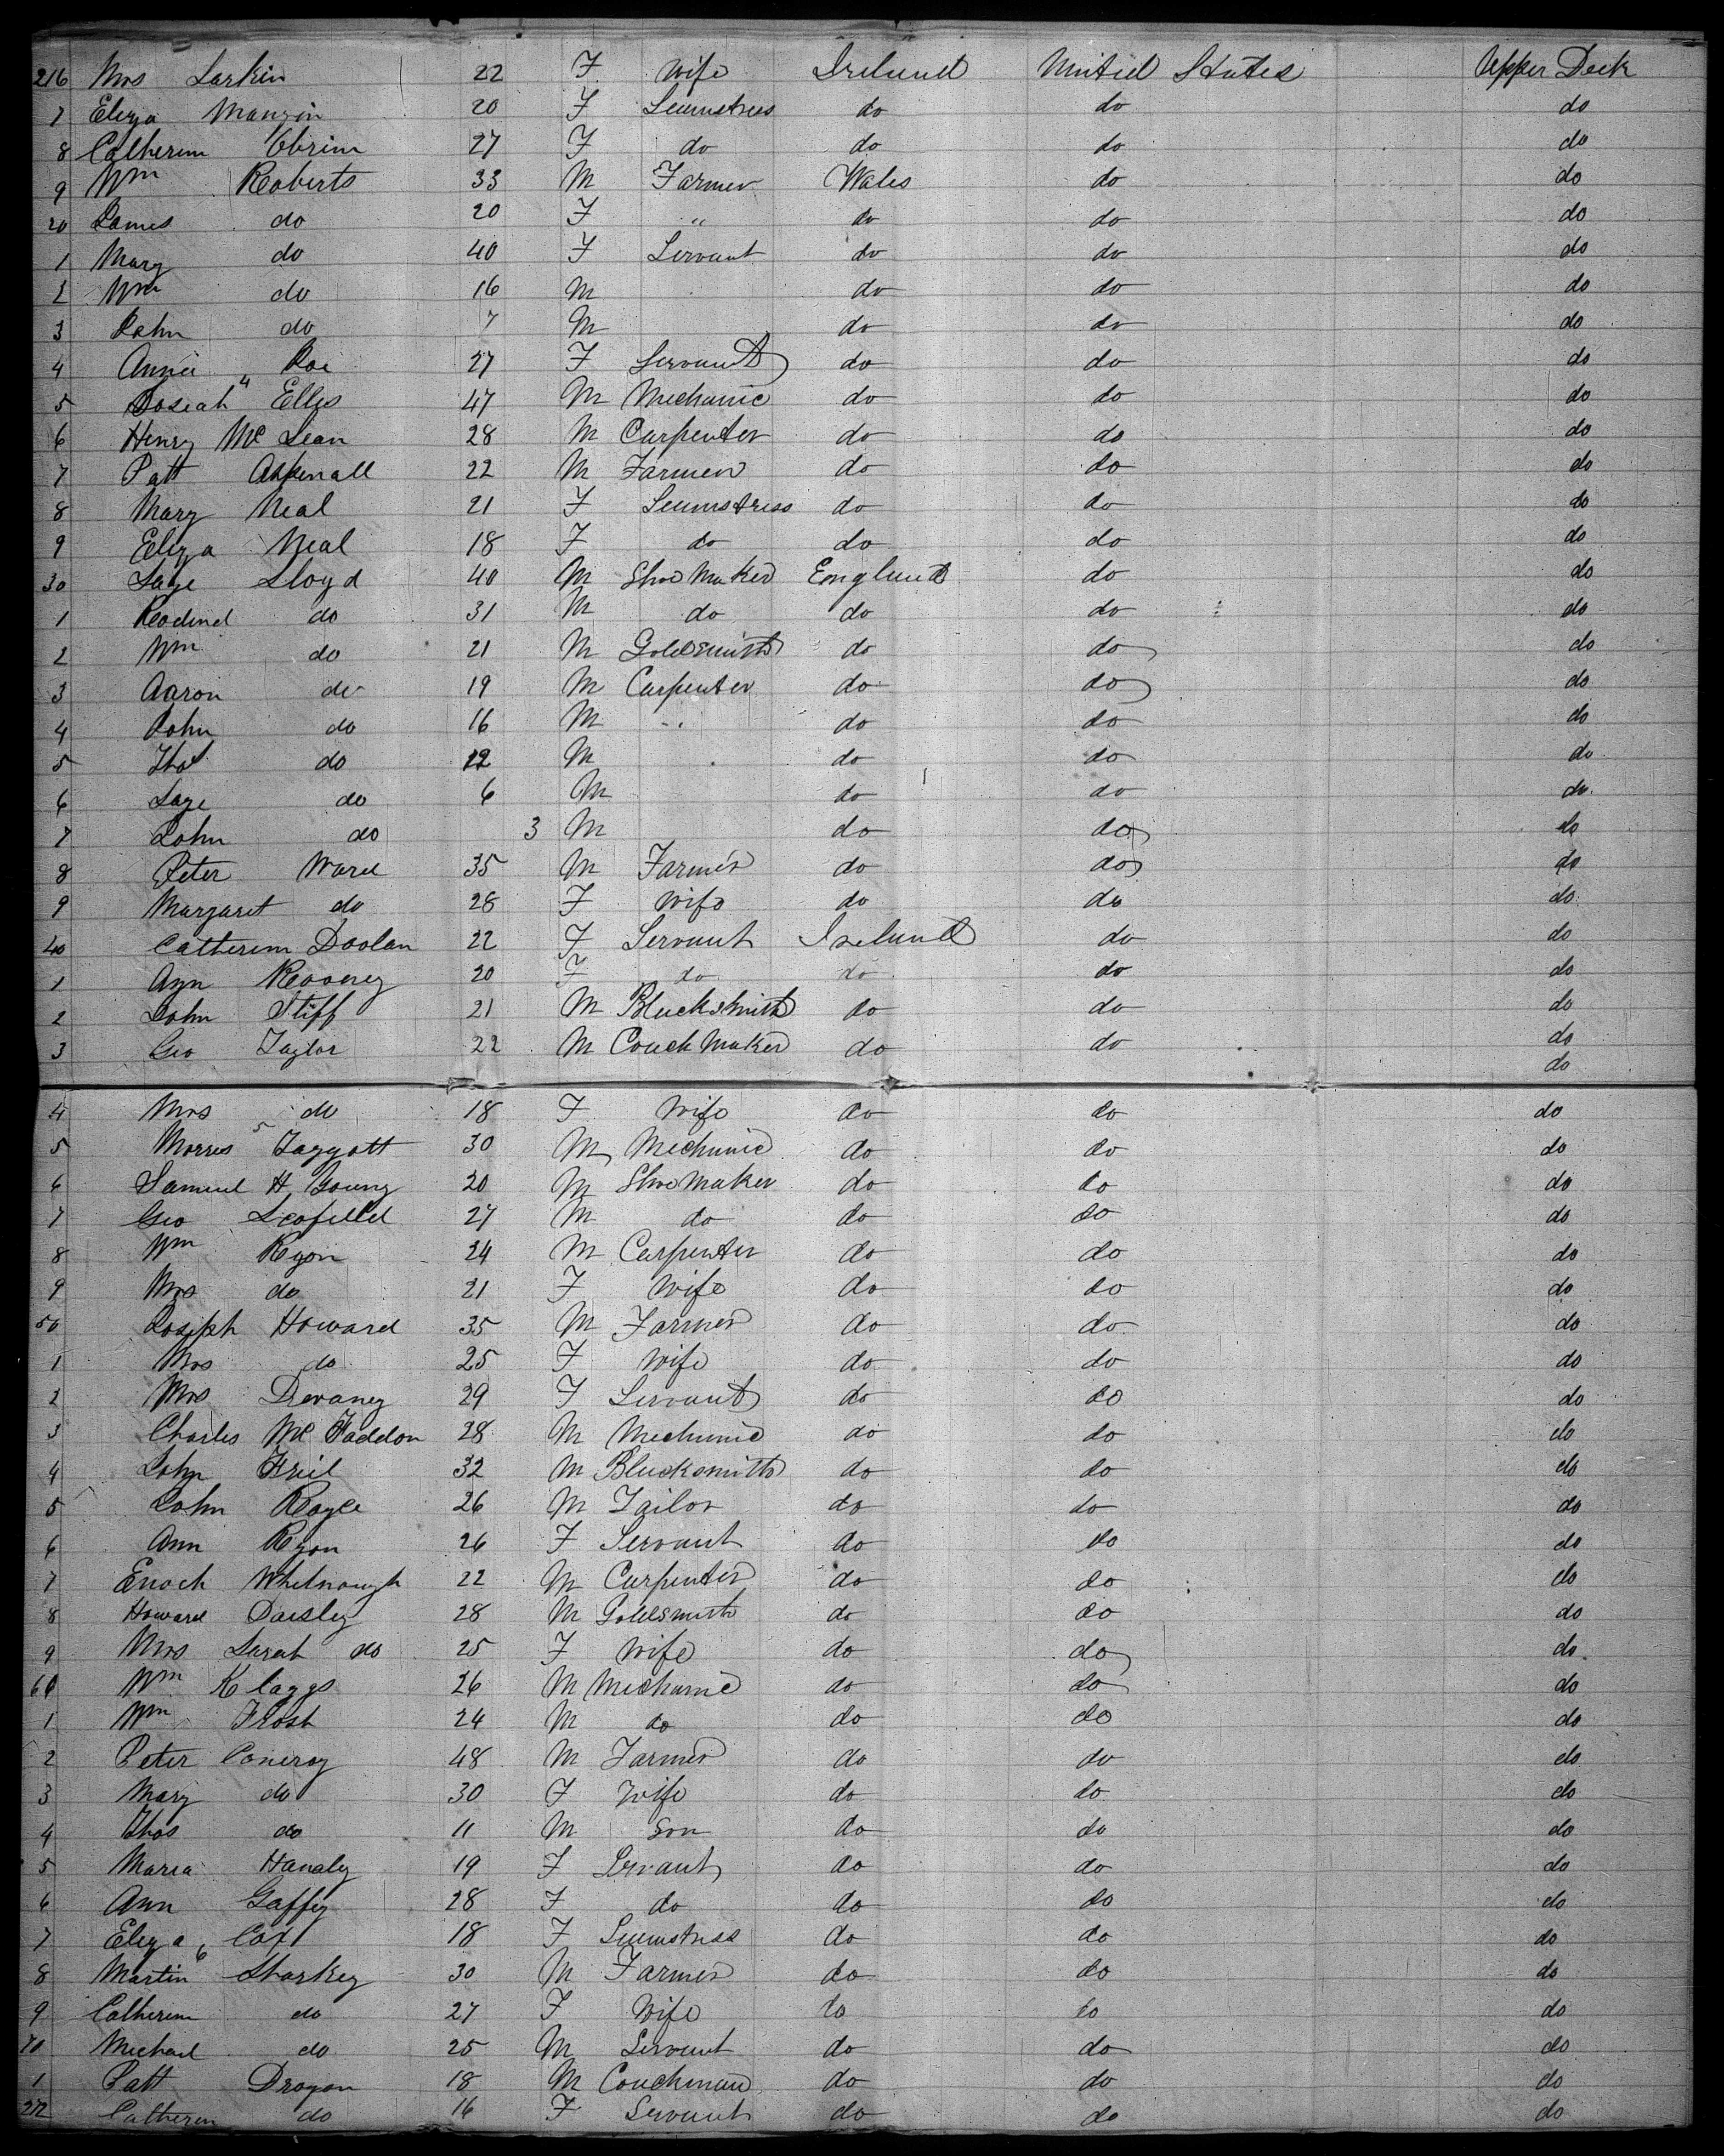 216 Mrs Larkin 22 F Wife Ireland United States Upper Deck
7 Eliza Manyin 20 F Seamstress do do do
8 Catherin Obrien 27 F do do do do
9 Wm Roberts 33 M Farmer Wales do do
20 James do 20 F " do do do
1 Mary do 40 F Servant do do do
2 Wm do 16 M do do do
3 John do 7 M do do do
4 Annie Roe 27 F Servant do do do
5 Josiah Ellis 47 M Mechanic do do do
6 Henry Mc Lean 28 M Carpenter do do do
7 Patt Aspenall 22 M Farmer do do do
8 Mary Neal 21 F Seamstress do do do
9 Eliza Neal 18 F do do do do
30 Lloyd 40 M Shoe Maker England do do
1 do 31 M do do do do
2 Wm do 21 M Goldsmith do do do
3 Aaron do 19 M Carpenter do do do
4 John do 16 M " do do do
5 Thos do 12 M do do do
6 do 6 M do do do
7 John do 3 M do do do
8 Peter Ward 35 M Farmer do do do
9 Margaret do 28 F Wife do do do
40 Catherin Doolan 22 F Servant Ireland do do
1 Ann Rooney 20 F do do do do
2 John Stiff 21 M Blacksmith do do do
3 Geo Taylor 22 M Coach Maker do do do
do
4 Mrs do 18 F Wife do do do
5 Morris Taggott 30 M Mechanic do do do
6 Samuel H Young 20 M Shoe Maker do do do
7 Geo Scofield 27 M do do do do
8 Wm Ryon 24 M Carpenter do do do
9 Mrs do 21 F Wife do do do
50 Joseph Howard 35 M Farmer do do do
1 Mrs do 25 F Wife do do do
2 Mrs Devaney 29 F Servant do do do
3 Charles Mc Faddon 28 M Mechanic do do do
4 John Friel 32 M Blacksmith do do do
5 John Royle 26 M Tailor do do do
6 Ann Ryon 26 F Servant do do do
7 Enoch Whitnough 22 M Carpenter do do do
8 Howard Daisley 28 M Goldsmith do do do
9 Mrs Sarah do 25 F Wife do do do
60 Wm Klaggs 26 M Mechanic do do do
1 Wm Frost 24 M do do do do
2 Peter Coneroy 48 M Farmer do do do
3 Mary do 30 F Wife do do do
4 Thos do 11 M Son do do do
5 Maria Hanaly 19 F Servant do do do
6 Ann Gaffey 28 F do do do do
7 Eliza Cox 18 F Seamstress do do do
8 Martin Sharkey 30 M Farmer do do do
9 Catherin do 27 F Wife do do do
70 Michael do 25 M Servant do do do
1 Patt Drogan 18 M Coachman do do do
272 Catherin do 16 F Servant do do do